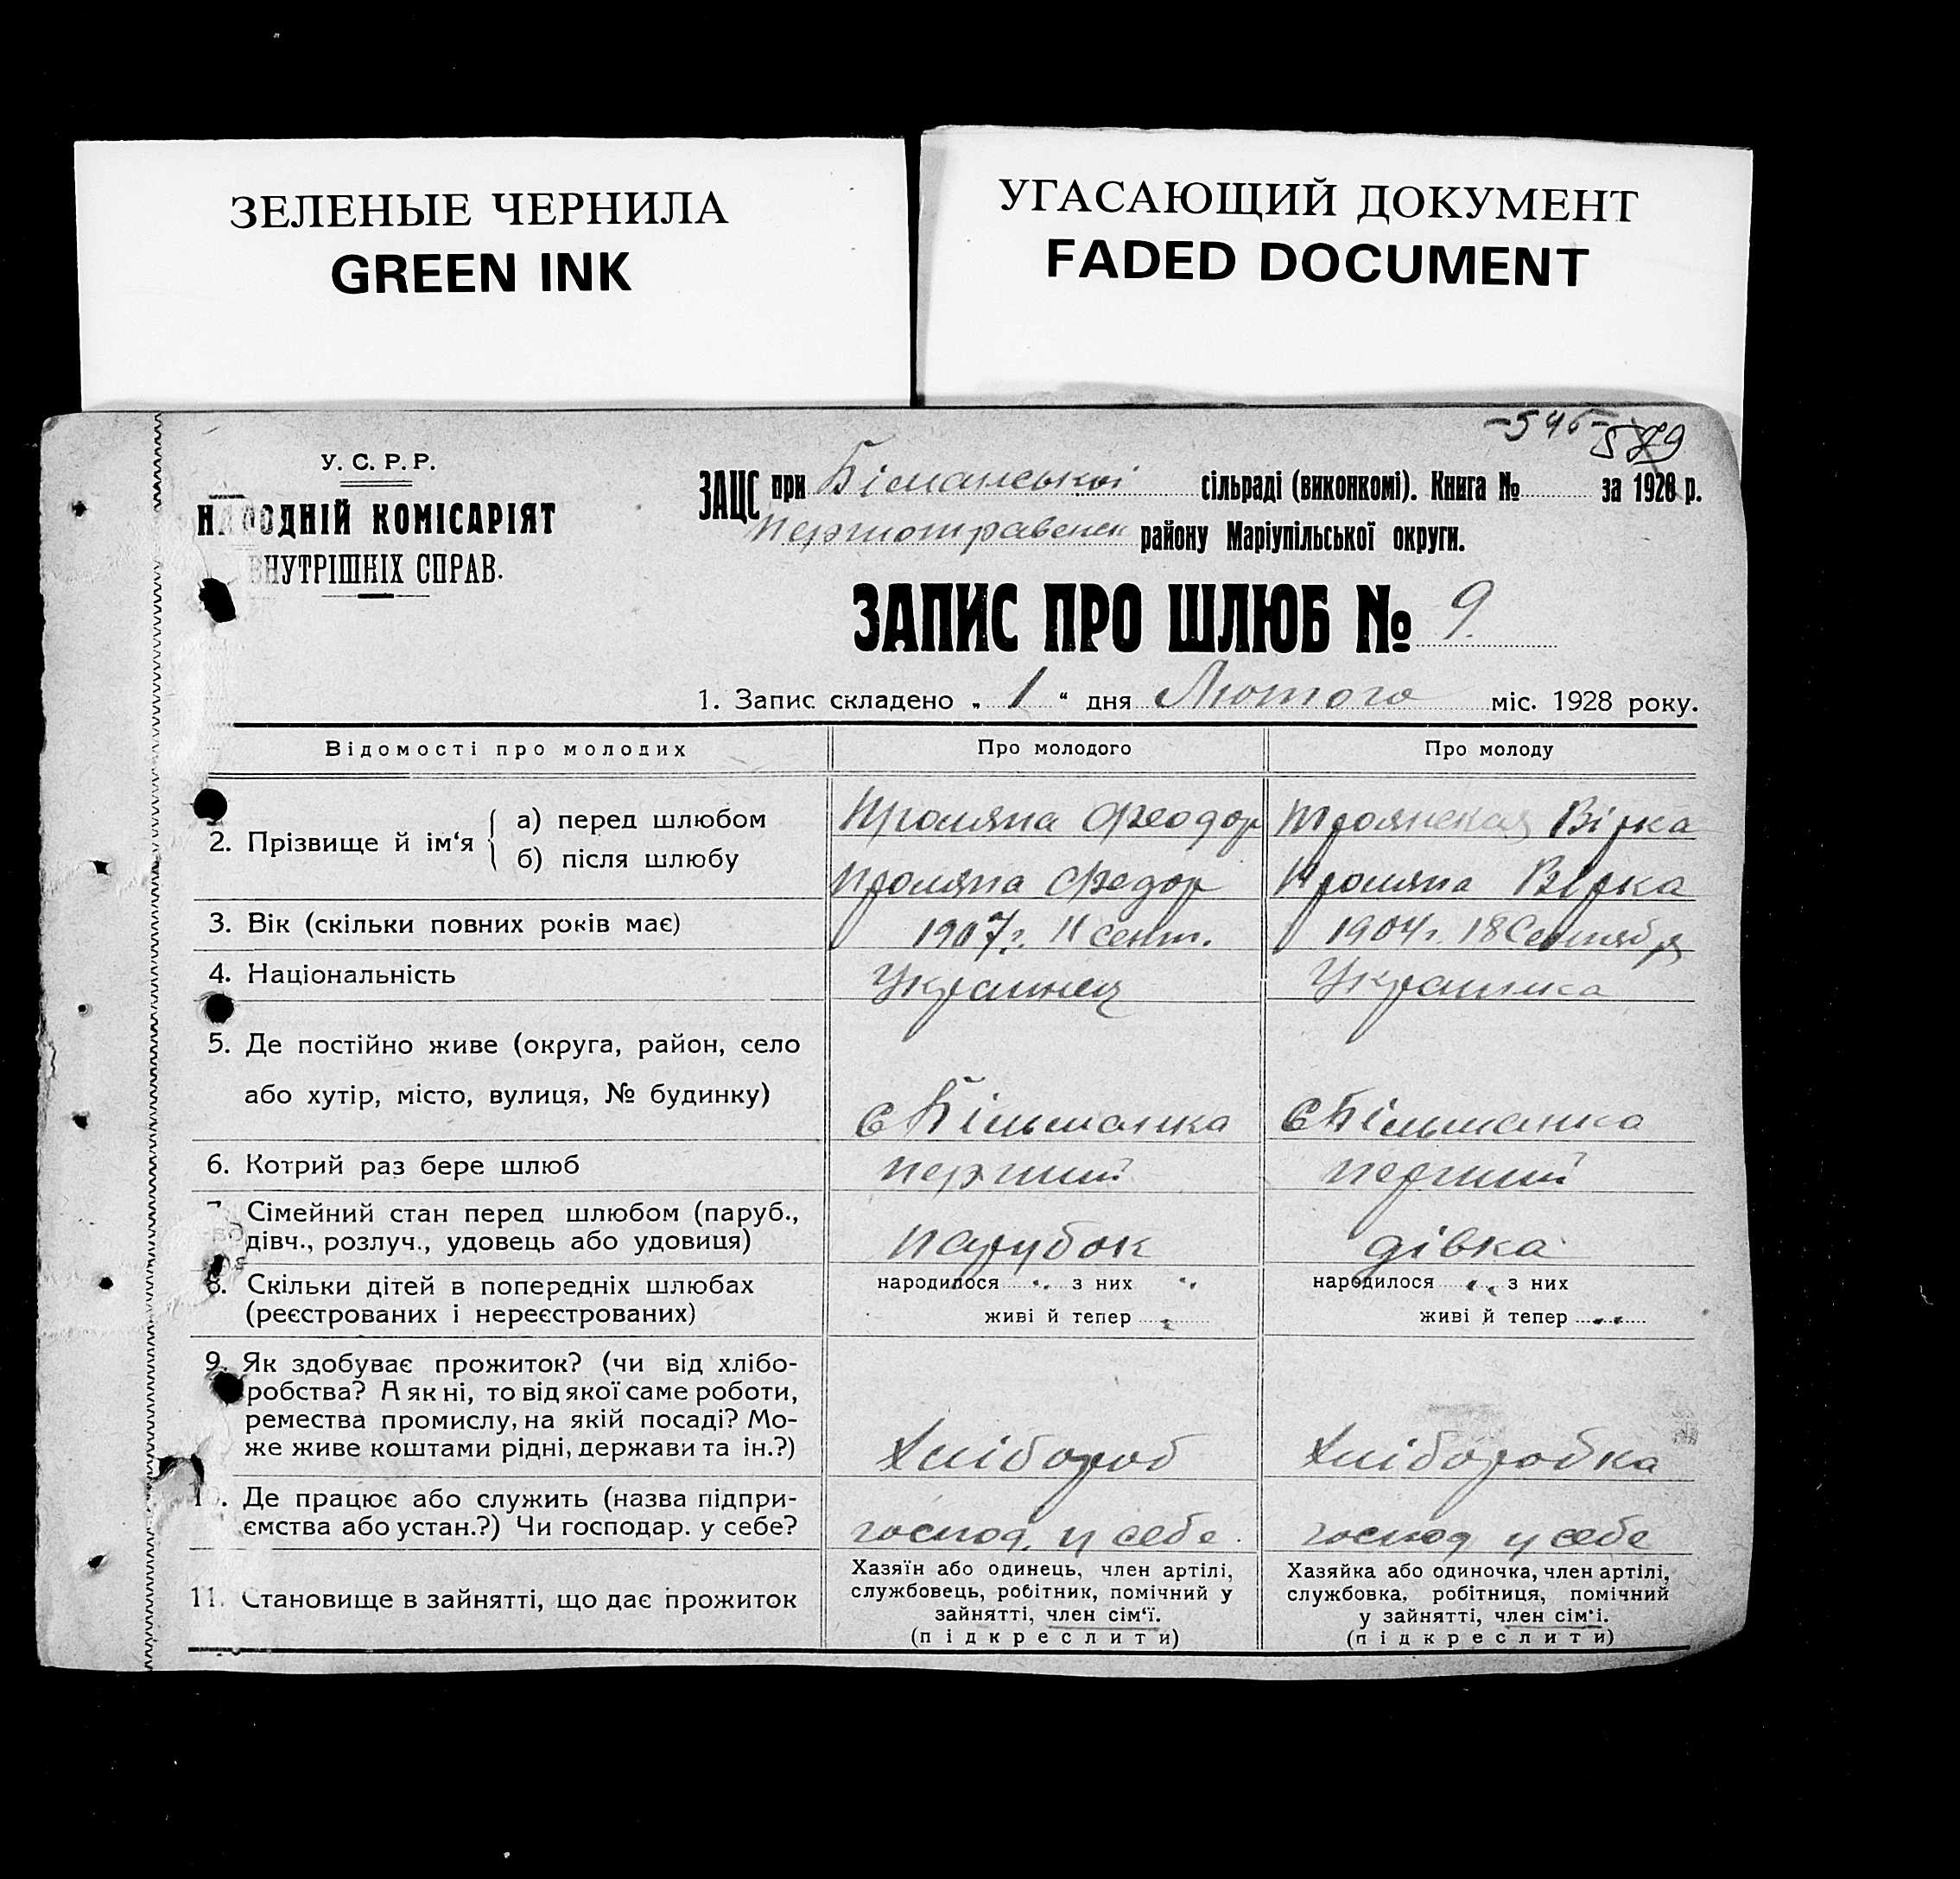 ЗЕЛЕНЫЕ ЧЕРНИЛА
GREEN INK
УГАСАЮЩИЙ ДОКУМЕНТ
FADED DOCUMENT
-546-
579
У. С. Р. Р.
НАРОДНІЙ КОМІСАРІЯТ
ВНУТРІШНІХ СПРАВ.
ЗАЦС при Бiманської сільраді (виконкомі). Книга № за 1928 р.
Першотравенск району Маріупільської округи.
ЗАПИС ПРО ШЛЮБ № 9.
1. Запис складено „ 1 “ дня Лютого міс. 1928 року.
Відомості про молодих
Про молодого
Про молоду
2. Прізвище й ім‘я
а) перед шлюбом
Феодор
Троянская Вірка
б) після шлюбу
Федор
Вірка
3. Вік (скільки повних років має)
1907 г. 11 сент.
1904 г. 18 Сентября
4. Національність
Украинец
Украинка
5. Де постійно живе (округа, район, село
або хутір, місто, вулиця, № будинку)
с Більманка
с Більманка
6. Котрий раз бере шлюб
перший
перший
7. Сімейний стан перед шлюбом (паруб.,
дівч., розлуч., удовець або удовиця)
парубок
дівка
8. Скільки дітей в попередніх шлюбах
(реєстрованих і нереєстрованих)
народилося „ з них „
живі й тепер „
народилося „ з них
живі й тепер „
9. Як здобуває прожиток? (чи від хлібо-
робства? А як ні, то від якої саме роботи,
ремества промислу, на якій посаді? Мо-
же живе коштами рідні, держави та ін.?)
Хлібороб
Хліборобка
10. Де працює або служить (назва підпри-
ємства або устан.?) Чи господар. у себе?
господ. у себе.
господ у себе
11. Становище в зайнятті, що дає прожиток
Хазяїн або одинець, член артілі,
службовець, робітник, помічний у
зайнятті, член сім‘ї.
(підкреслити)
Хазяйка або одиночка, член артілі,
службовка, робітниця, помічний
у зайнятті, член сім‘і.
(підкреслити)